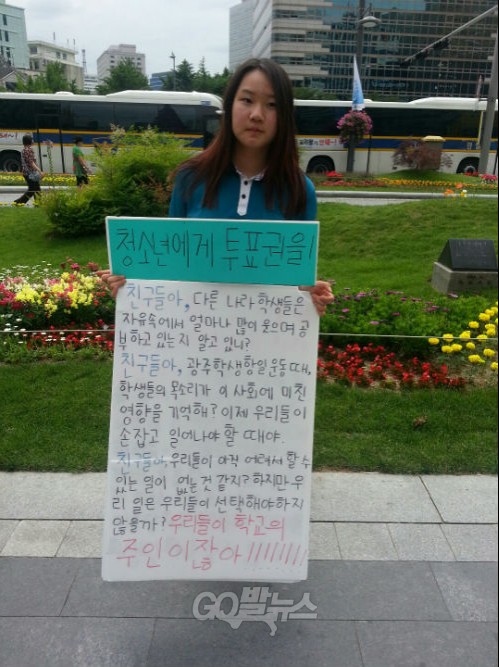 청소년에게 투표권을!
친구들아, 다른 나라 학생들은
자유속에서 얼마나 많이 웃으며 공
부하고 있는지 알고 있니?
친구들아, 광주학생항일운동때,
학생들의 목소리가 이 사회에 미친
영향을 기억해? 이제 우리들이
손잡고 일어나야 할 때야.
친구들아, 우리들이 아직 어려서 할 수
있는 일이 없는 것 같지? 하지만 우
리 일은 우리들이 선택해야하지
않을까? 우리들이 학교의
주인이잖아!!!!!!!!
GO발뉴스